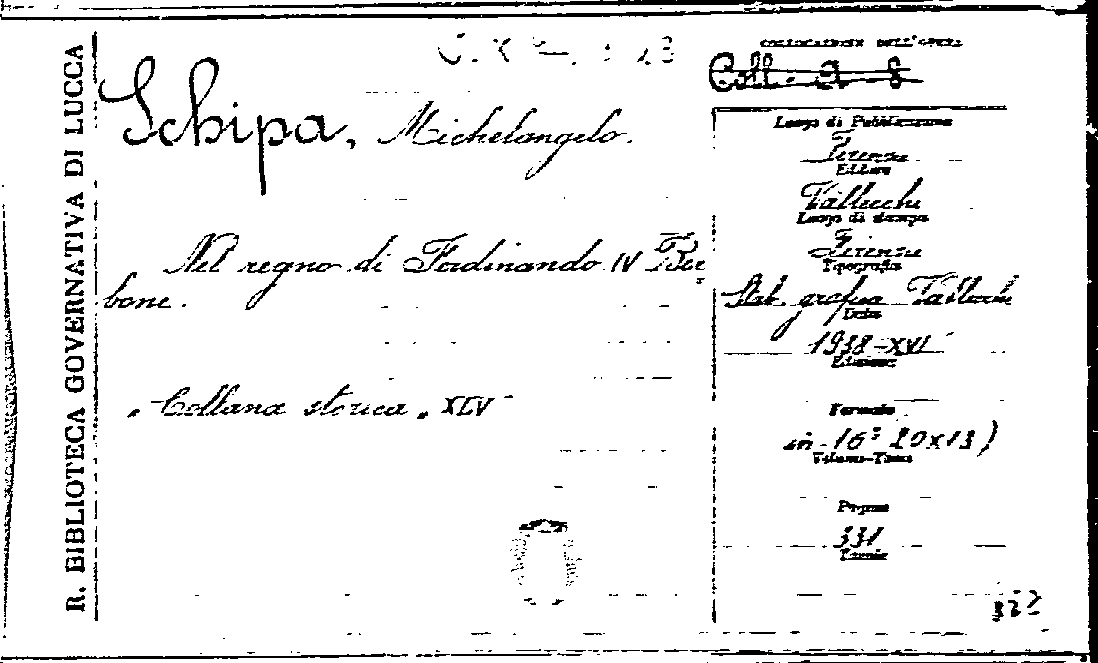 R. BIBLIOTECA GOVERNATIVA DI LUCCA
Schipa, Michelangelo.
Nel regno di Ferdinando IV Bor
bone.
"Collana storica" XLV
COLLOCAZIONE DELL'OPERA
Coll. A 8
Luogo di Pubblicazione
Firenze
Editore
Vallecchi
Luogo di stampa
Firenze
Tipografia
Stab. grafico Vallecchi
Data
1938-XVI
Edizione
Formato
in 16° 20x13)
Volume-Tomo
Pagine
331
Tavole